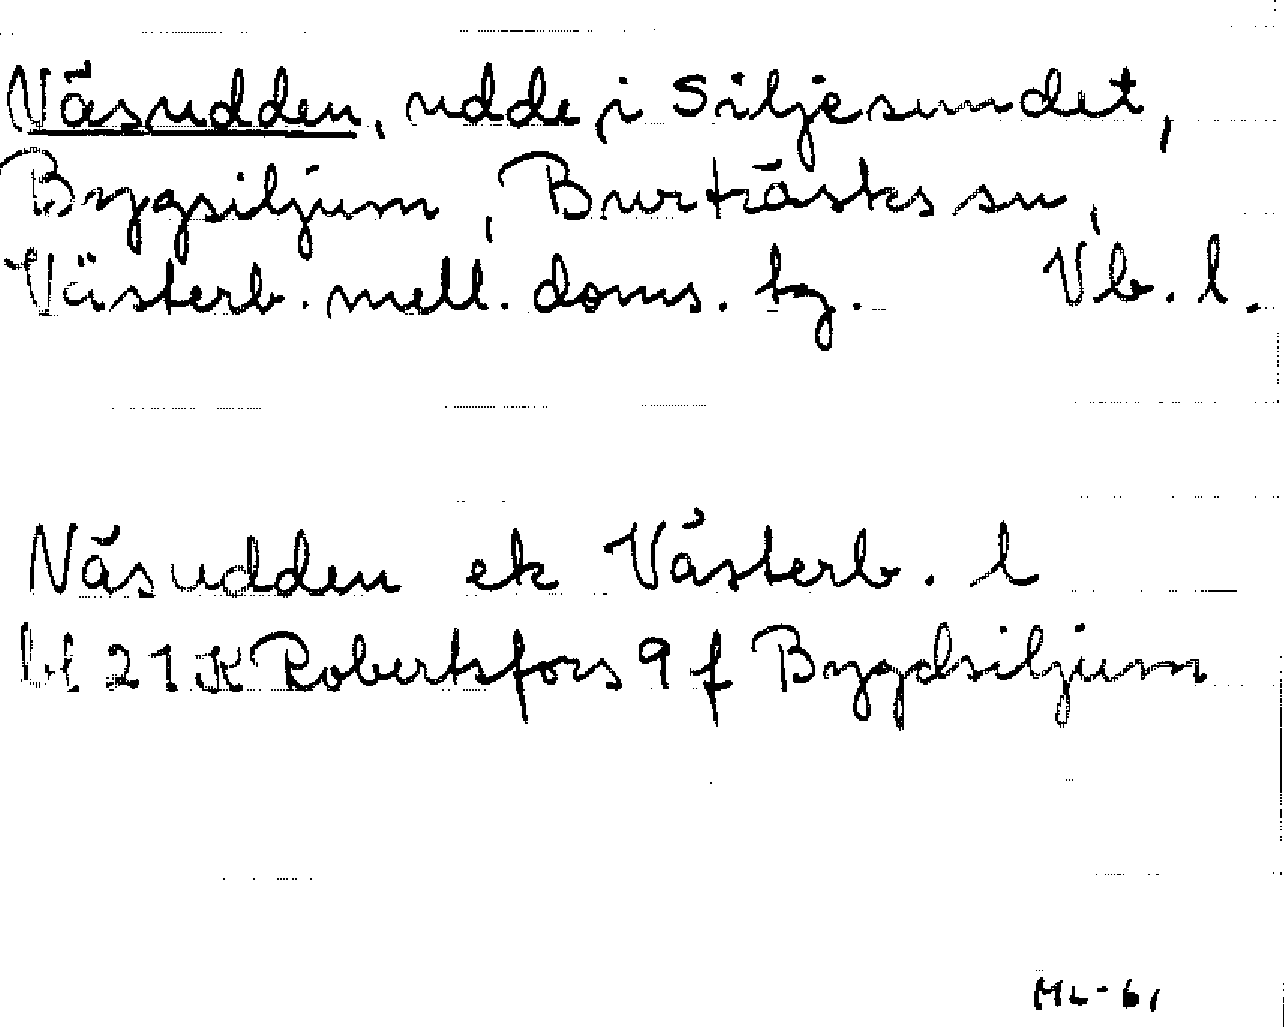 Näsudden, udde i Siljesundet,
Bygsiljum, Burträsks sn,
Västerb. mell. doms. tg. Vb. l.
Näsudden ek Västerb. l
bl 21K Robertsfors 9 f Bygdsiljum
ML-61